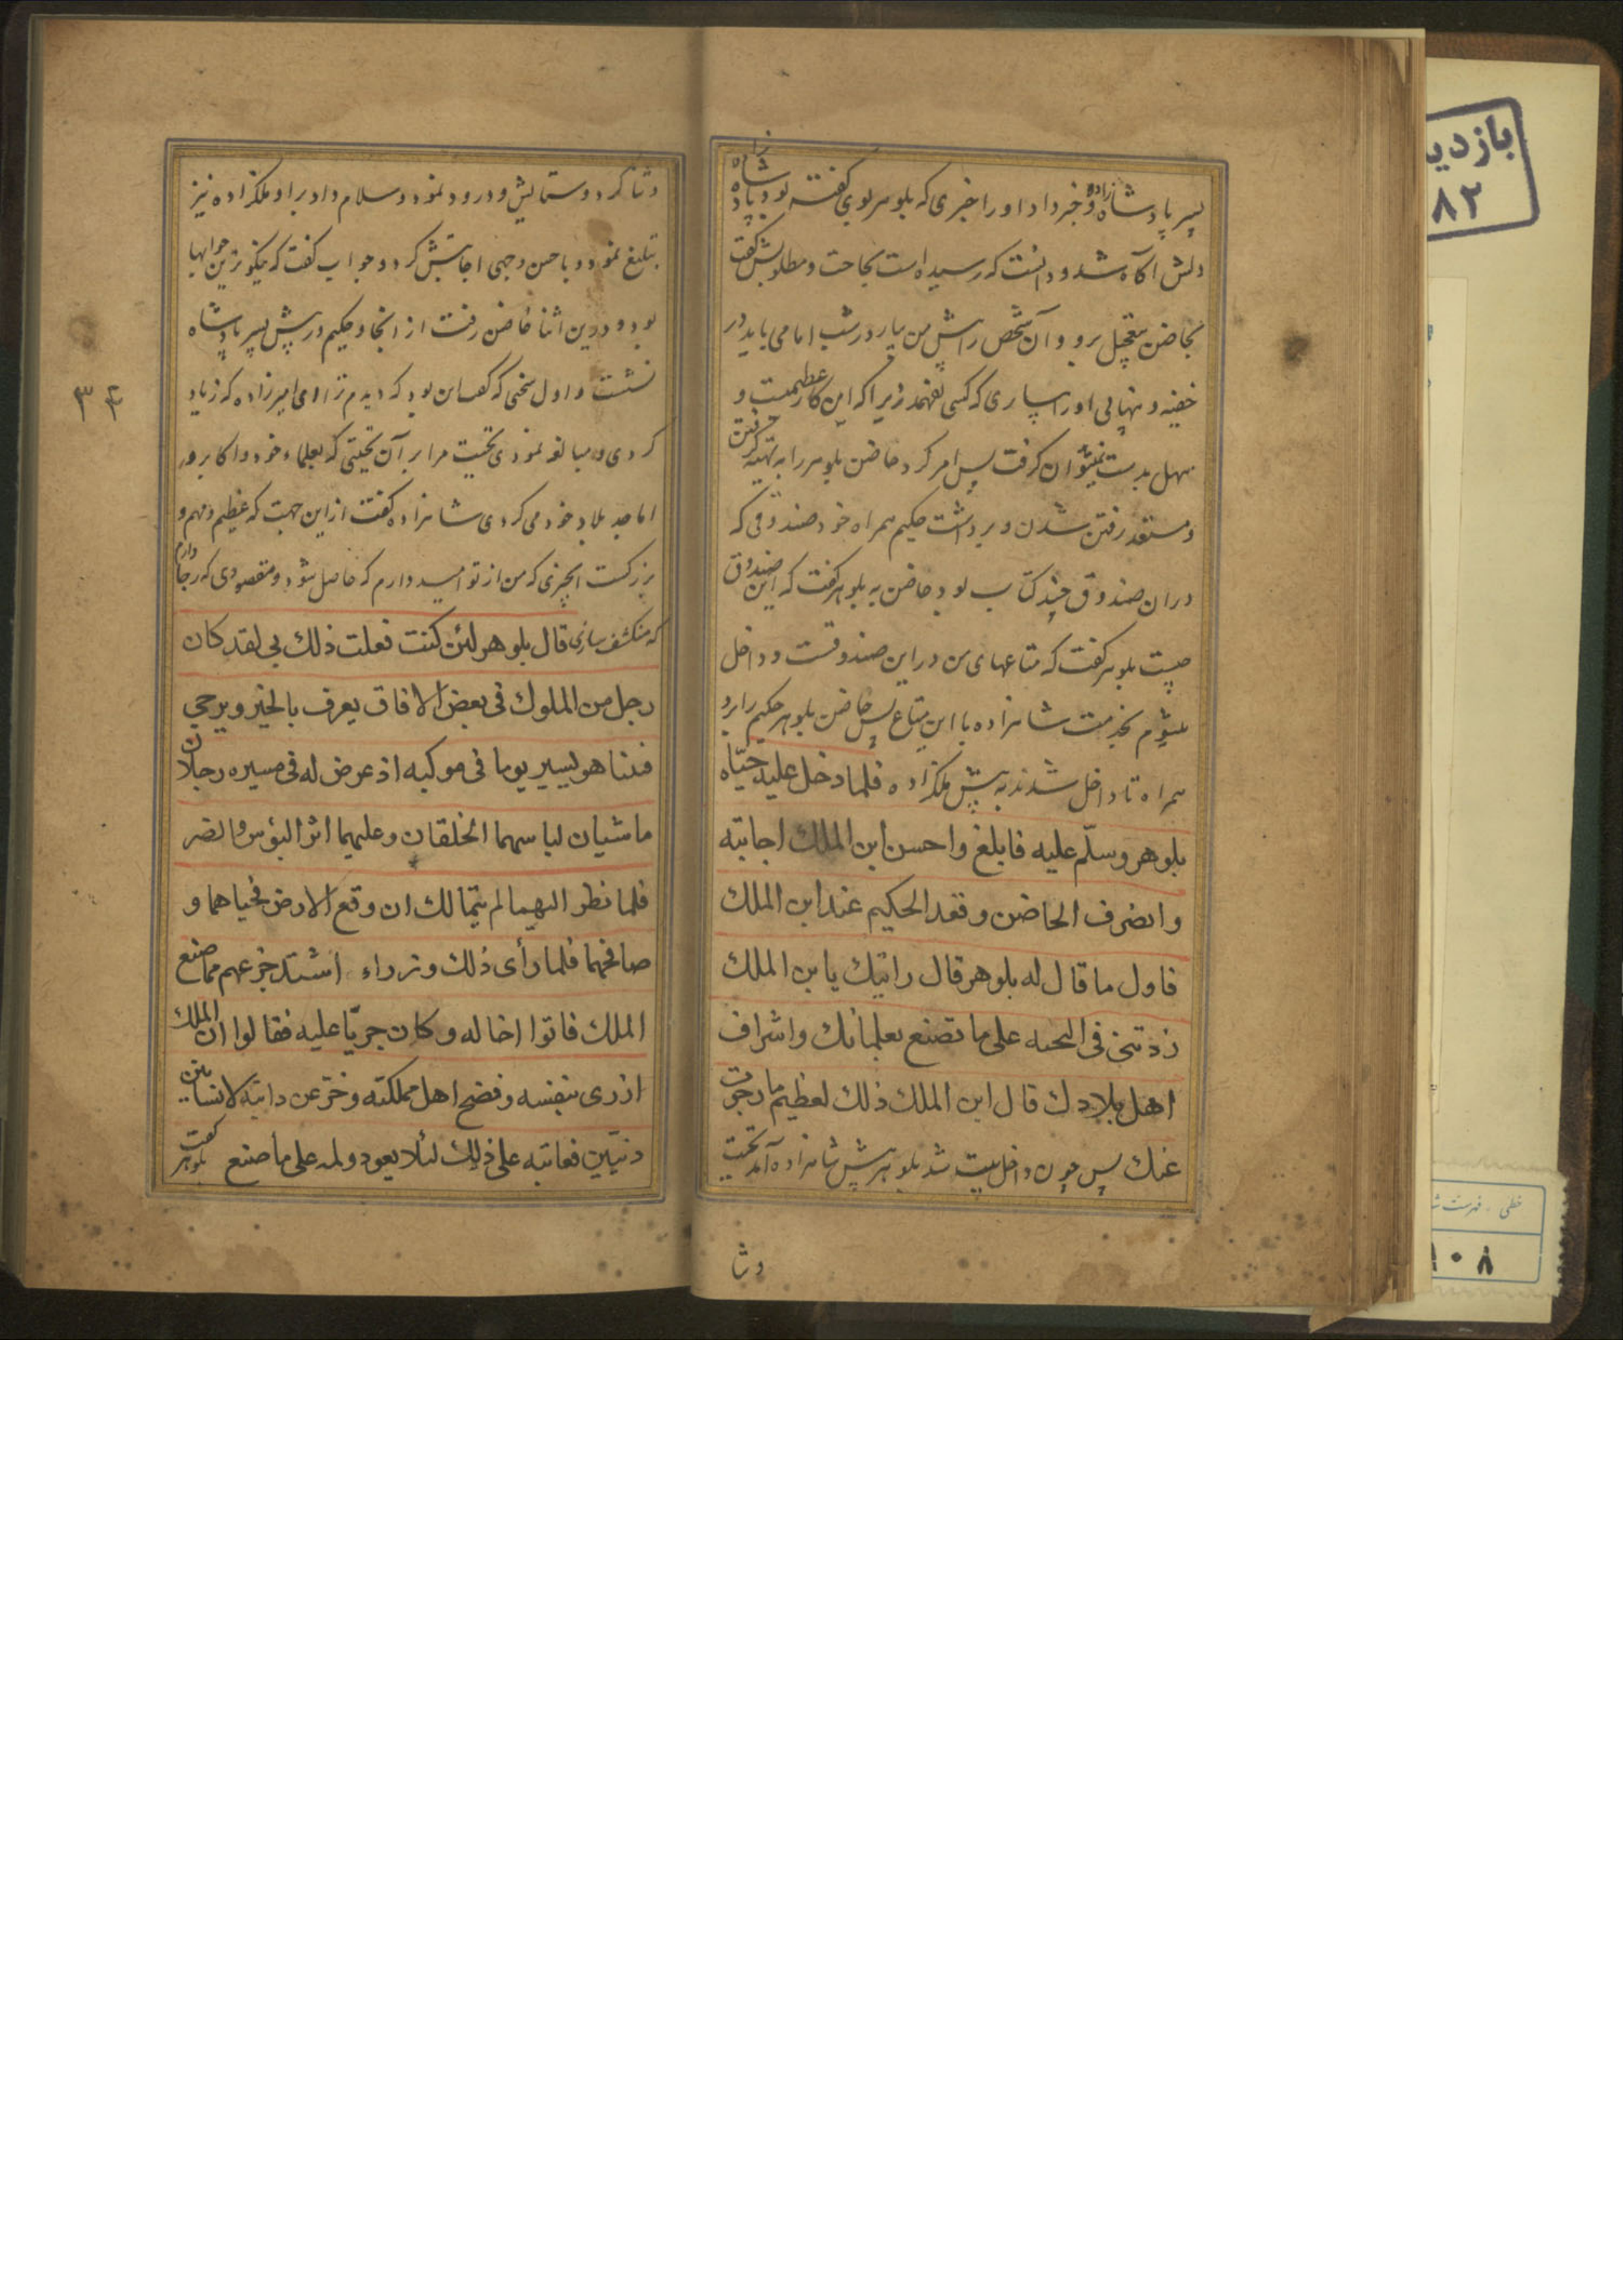 پسر پادشاه و خبر داد او را خبری که بلوهر بوی گفته بود پادشاه زاده
دلش آگاه شد و دانست که رسیده است بحاجت و مطلوبش گفت
بحاضن بتعجیل برو و آن شخص را پیش من بیار در شب اما می باید در
خفیه و پنهانی او را بسپاری که کسی نفهمد زیرا که این کار عظیمیست و
سهل بدست نمیتوان گرفت پس امر کرد حاضن بلوهر را به تهیه گرفتن
و مستعد رفتن شدن و برداشت حکیم همراه خود صندوقی که
در ان صندوق چند کتاب بود حاضن به بلوهر گفت که این صندوق
چیست بلوهر گفت که متاعهای من در این صندوقست و داخل
میشوم بخدمت شاهزاده با این متاع پس حاضن بلوهر حکیم را برد
همراه تا داخل شدند به پیش ملکزاده فلما دخل علیه حیّاه
بلوهر وسلّم علیه فابلغ واحسن ابن الملك اجابته
وانصرف الحاضن وقعد الحکیم عند ابن الملك
فاول ما قال له بلوهر قال رایتك یا بن الملك
زدتنی فی التحیه علی ما تصنع بعلمائك واشراف
اهل بلادك قال ابن الملك ذلك لعظیم ما رجوت
عندك پس چون داخل بیت شد بلوهر پیش شاهزاده آمد تحیت
وثنا
وثنا کرد و ستایش و درود نمود و سلام داد بر او و ملکزاده نیز
تبلیغ نمود و باحسن وجهی اجابتش کرد و جواب گفت که نیکوترین جوابها
بود و در این اثنا حاضن رفت از انجا و حکیم در پیش پسر پادشاه
نشست و اول سخنی که گفت این بود که دیدم ترا ای امیرزاده که زیاد
کردی و مبالغه نمودی تحیت مرا بر آن تحیتی که بعلماء خود و اکابر و
اماجد بلاد خود می کردی شاهزاده گفت از این جهت که عظیم و مهم و
بزرگست انچیزی که من از تو امید دارم که حاصل شود و مقصودی که رجا دارم
که منکشف سازی قال بلوهر لئن کنت فعلت ذلك بی لقد کان
رجل من الملوك فی بعض الافاق یعرف بالخیر ویرجی
فبینا هو یسیر یوما فی موکبه اذ عرض له فی مسیره رجلان
ماشیان لباسهما الخلقان وعلیهما اثر البؤس والضر
فلما نظر الیهما لم یتمالك ان وقع الارض فحیاهما و
صافحهما فلما رأی ذلك وزراءه اشتد جزعهم مما صنع
الملك فاتوا اخا له وکان جریّا علیه فقالوا ان الملك
ازری بنفسه وفضح اهل مملکته وخرّ عن دابته لانسانین
دنیّین فعاتبه علی ذلك لئلا یعود ولمه علی ما صنع بلوهر گفت
۳۴
بازدید
۸۲
خطی . فهرست ش
۱۰۸